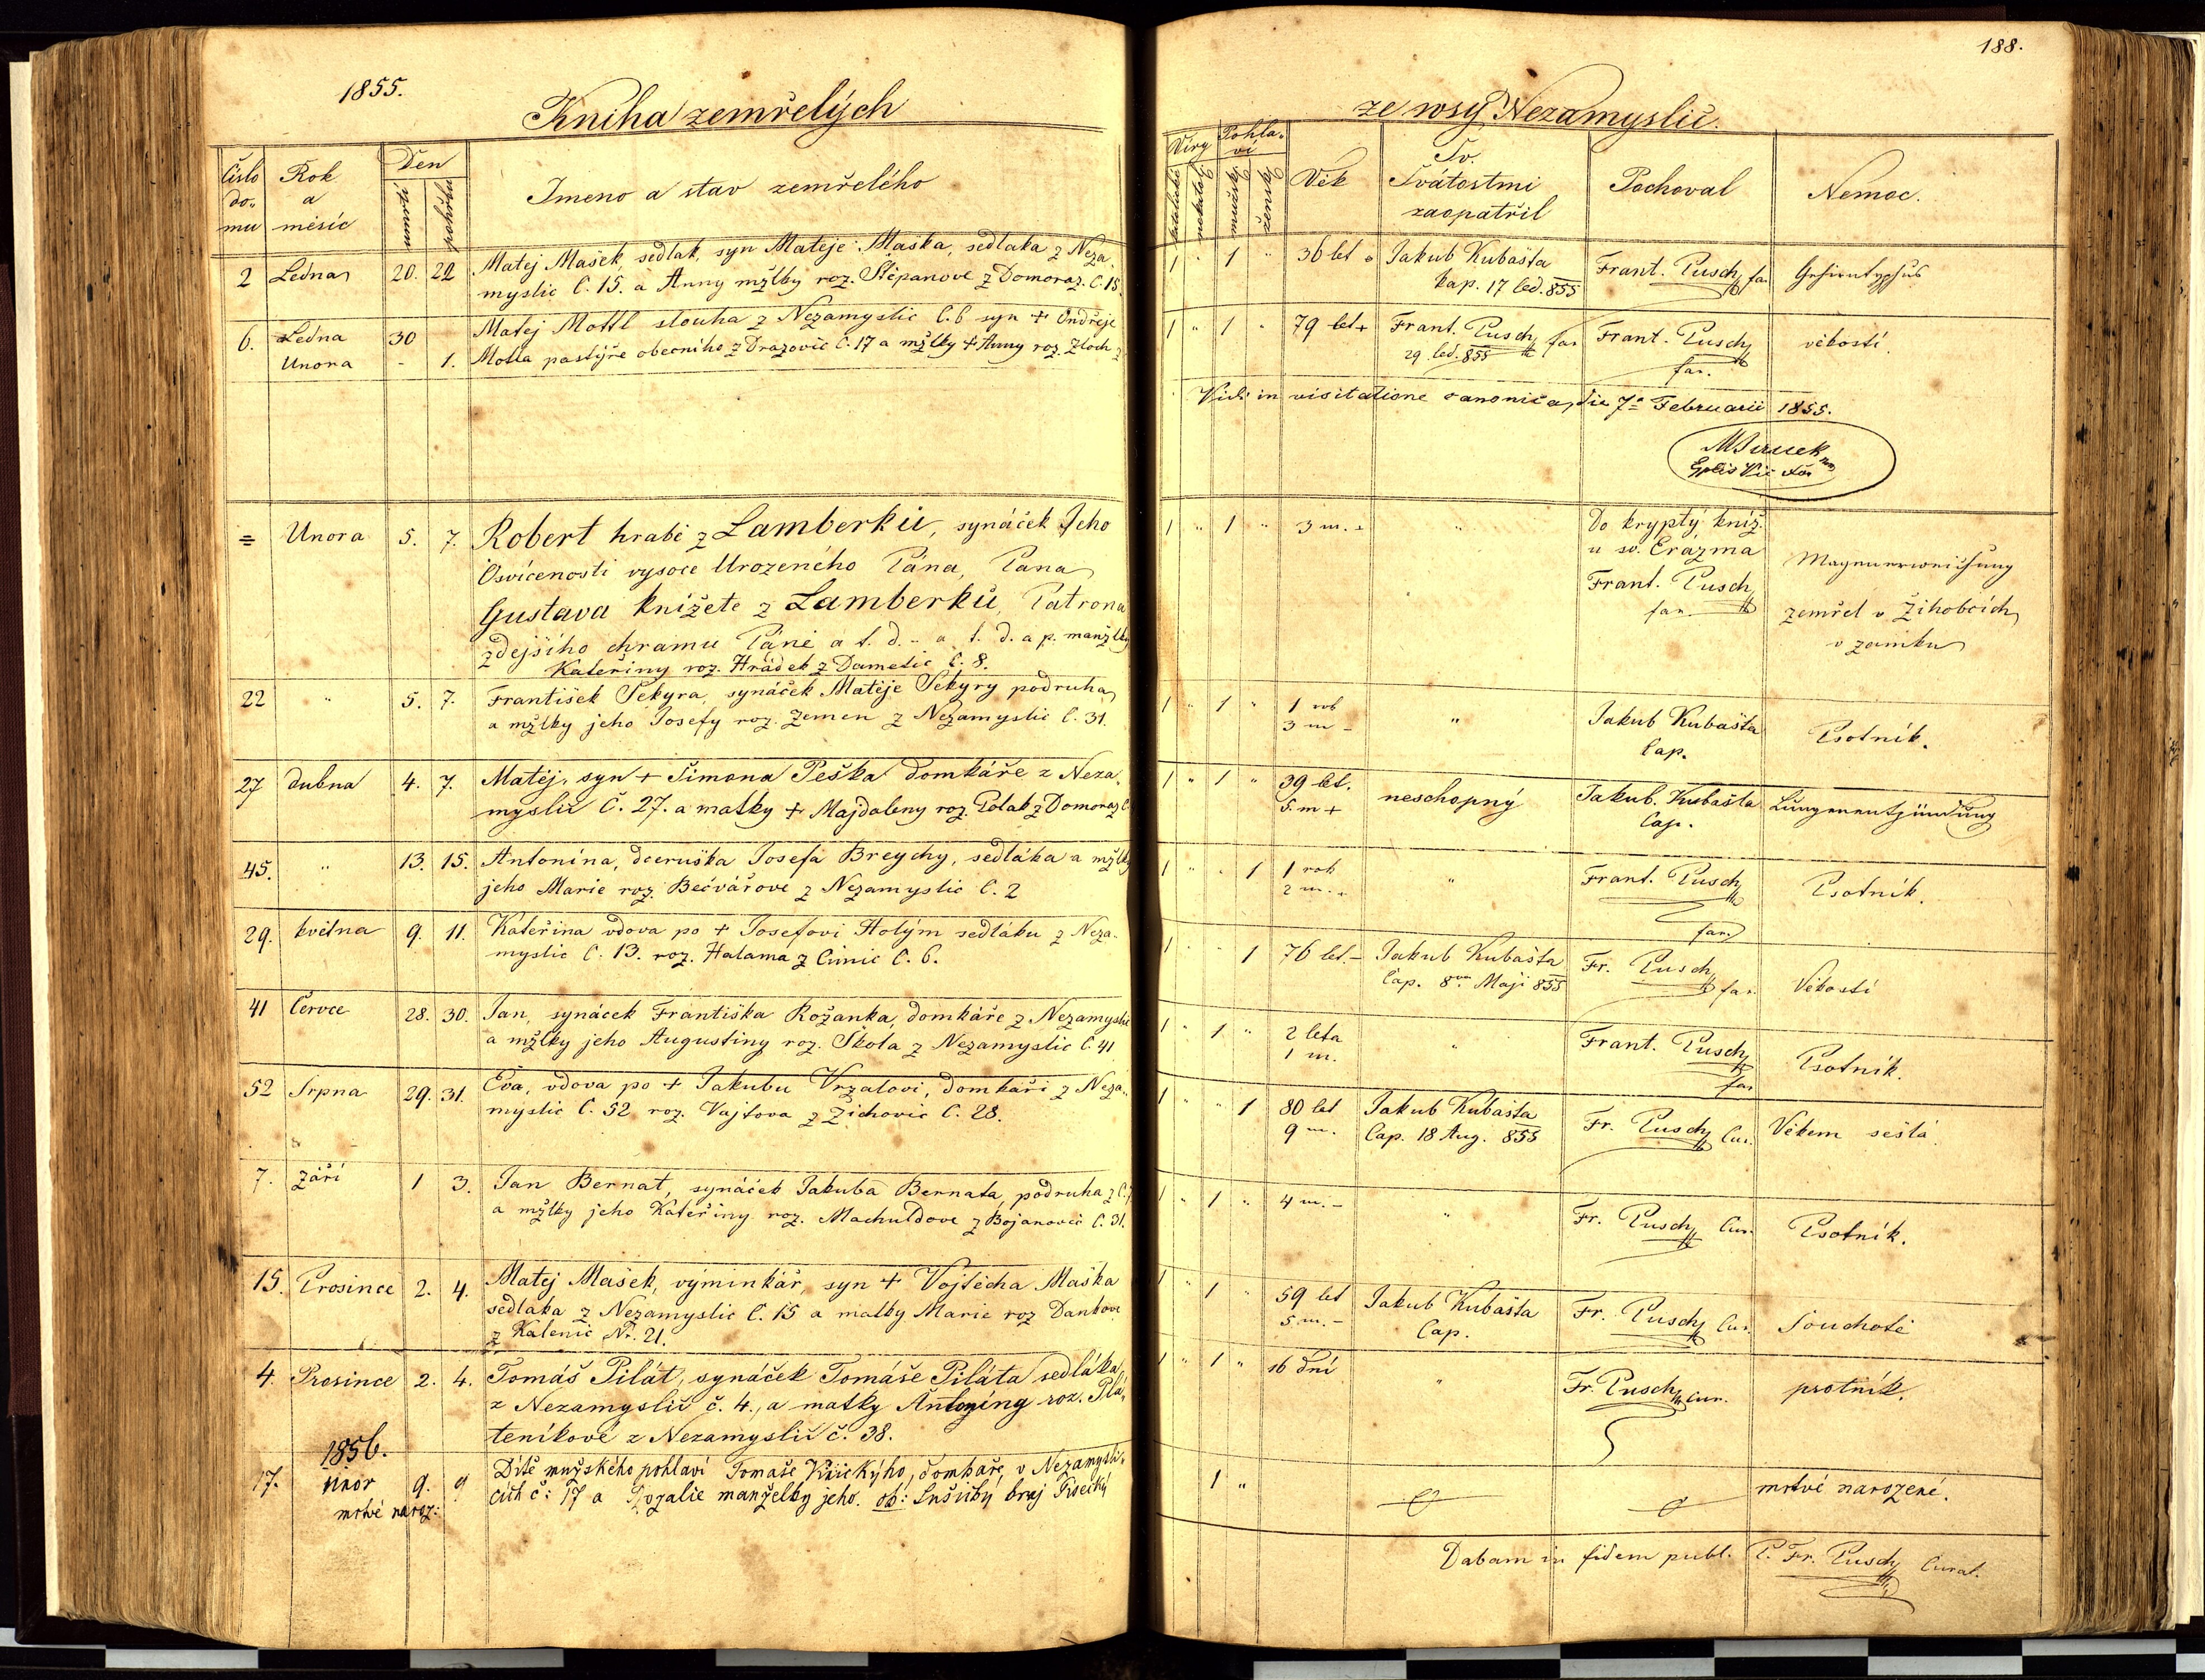 1855.
Kniha zemřelých
Číslo do- mu
Rok a měsíc
Den
úmrtí
pohřbu
Jmeno a stav zemřelého
2 Ledna 20. 22 Matěj Mašek, sedlak, syn Matěje Maška, sedlaka z Neza
myslic č. 15. a Anny mžlky roz. Štěpanove z Domoraz. č. 15.
6. Ledna 30 Matěj Mottl slouha z Nezamyslic č. 6 syn + Ondřeje
Unora - 1. Motla pastýře obecního z Drazovic č. 17 a mžlky + Anny roz. Zloch z
= Unora 5. 7. Robert hrabě z Lamberků, synáček Jeho
Osvícenosti vysoce Urozeného Pána, Pana
Gustava knížete z Lamberků, Patrona
zdejšího chramu Páně a t. d. - a t. d. a p. manžlky
Kateřiny roz. Hrádek z Damětic č. 8.
22 " 5. 7. František Sekyra, synáček Matěje Sekyry podruha
a mžlky jeho Josefy roz. Zemen z Nezamyslic č. 31.
27 dubna 4. 7. Matěj, syn + Šimona Peška domkáře z Neza
myslic č. 27. a matky + Majdaleny roz. Polak z Domoraz
45. " 13. 15. Antonína, dceruška Josefa Breychy, sedláka a mžlky
jeho Marie roz. Bečvářove z Nezamyslic č. 2
29. května 9. 11. Kateřina vdova po + Josefovi Holým sedláku z Neza-
myslic č. 13. roz. Halama z Čimic č. 6.
41 Července 28. 30. Jan, synáček Františka Rožanka, domkáře z Nezamyslic
a mžlky jeho Augustiny roz. Škola z Nezamyslic č. 41
52 Srpna 29. 31. Eva, vdova po + Jakubu Vrzalovi, domkaři z Neza-
myslic č. 52 roz. Vajsova z Žichovic č. 28.
7. Září 1 3. Jan Bernat, synáček Jakuba Bernata, podruha z č. 7
a mžlky jeho Kateřiny roz. Machuldove z Bojanovic č. 31.
15. Prosince 2. 4. Matěj Mašek, výminkář, syn + Vojtěcha Maška
sedlaka z Nezamyslic č. 15 a matky Marie roz Dankove
z Kalenic Nr. 21.
4. Prosince 2. 4. Tomáš Pilát, synáček Tomáše Piláta sedláka
z Nezamyslic č. 4., a matky Antoníny roz. Pla-
teníkové z Nezamyslic č. 38.
1856.
17. únor 9. 9 Dítě mužského pohlaví Tomaše, domkaře, v Nezamysli-
mrtvé naroz: cích č: 17 a Rozalie manželky jeho.
188.
ze wsy Nezamyslic.
Víry
Pohla- ví
katolické
nekatol.
mužský
ženský
Věk
Sv. Svátostmi zaopatřil
Pochoval
Nemoc.
1 " 1 " 36 let Jakub Kubašta Frant. Pusch far
kap. 17 led. 855
1 " 1 " 79 let + Frant. Pusch far Frant. Pusch věkostí.
29. led. 855 far.
Vidi in visitatione canonica die 7ª Februarii 1855.
1 " 1 " 3 m. + " Do krypty kníž.
u sv. Erázma
Frant. Pusch Magenerweichung
far. zemřel v Žihobcích
v zamku
1 " 1 " 1 rok " Jakub Kubašta Psotník.
3 m - Cap.
1 " 1 " 39 let. neschopný Jakub. Kubašta Lungenentzündung
5. m + Cap.
1 " " 1 1 rok " Frant. Pusch Psotník.
2 m. + far.
1 " 1 76 let. - Jakub Kubašta Fr. Pusch far. Věkostí
Cap. 8va Maji 855
1 " 1 " 2 leta " Frant. Pusch Psotník.
1 m. far
1 " " 1 80 let Jakub Kubašta Fr. Pusch Cur. Věkem sešlá.
9 m. Cap. 18 Aug. 855
1 " 1 " 4 m. - " Fr. Pusch Cur. Psotník.
1 " 1 " 59 let Jakub Kubašta Fr. Pusch Cur. Souchotě
5 m. - Cap.
1 " 1 " 16 dní " Fr. Pusch cur. psotník.
1 " mrtvé narozené.
Dabam in fidem publ. P. Fr. Pusch Curat.